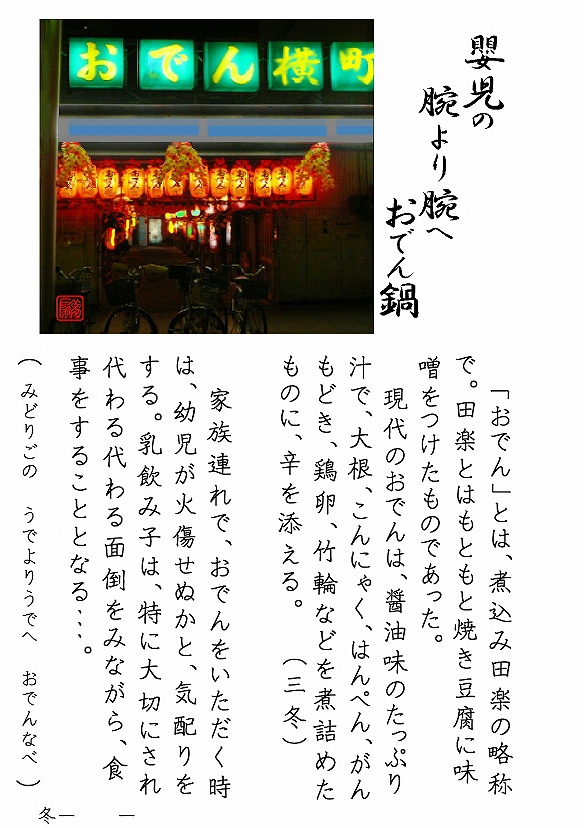 おでん横町
嬰児の
腕より腕へ
おでん鍋
「おでん」とは、煮込み田楽の略称
で。田楽とはもともと焼き豆腐に味
噌をつけたものであった。
現代のおでんは、醤油味のたっぷり
汁で、大根、こんにゃく、はんぺん、がん
もどき、鶏卵、竹輪などを煮詰めた
ものに、辛を添える。 (三冬)
家族連れで、おでんをいただく時
は、幼児が火傷せぬかと、気配りを
する。乳飲み子は、特に大切にされ
代わる代わる面倒をみながら、食
事をすることとなる…。
(みどりごの うでよりうでへ おでんなべ)
冬ー ー